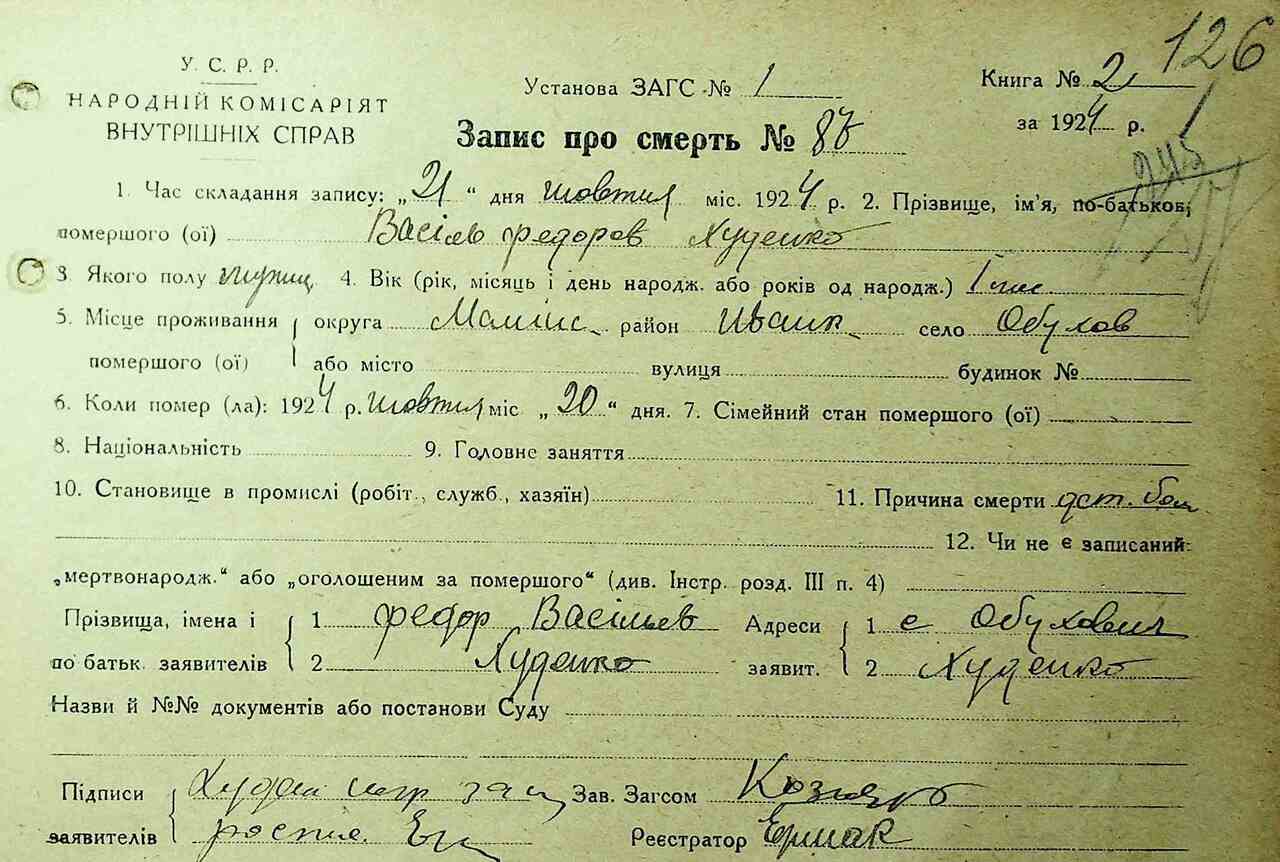 126
У. С. Р. Р.
НАРОДНІЙ КОМІСАРІЯТ
ВНУТРІШНІХ СПРАВ
Установа ЗАГС № 1
Книга № 2
за 1924 р.
Запис про смерть № 87
245
1. Час складання запису: „21“ дня жовтня міс. 1924 р. 2. Прізвище, ім'я, по-батькові,
помершого (ої) Васілів Федоров Худенко
3. Якого полу мужич. 4. Вік (рік, місяць і день народж. або років од народж.) 1 міс
5. Місце проживання округа район Иванк село Обухов
помершого (ої) або місто вулиця будинок №
6. Коли помер (ла): 1924 р. жовтня міс „20“ дня. 7. Сімейний стан помершого (ої)
8. Національність 9. Головне заняття
10. Становище в промислі (робіт., служб., хазяїн) 11. Причина смерти
12. Чи не є записаний:
„мертвонародж.“ або „оголошеним за помершого“ (див. Інстр. розд. III п. 4)
Прізвища, імена і 1 Федор Васільев Адреси 1 с Обухович
по батьк. заявителів 2 Худенко заявит. 2 Худенко
Назви й №№ документів або постанови Суду
Підписи Зав. Загсом
заявителів Реєстратор Ермак